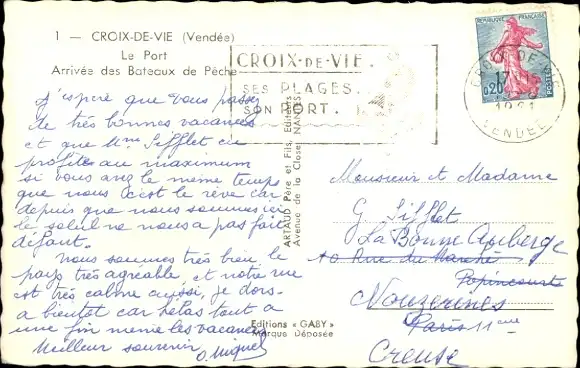 1 - CROIX-DE-VIE (Vendée)
Le Port
Arrivée des Bateaux de Pêche
CROIX-DE-VIE.
SES PLAGES.
SON PORT.
RÉPUBLIQUE FRANÇAISE
0,20
POSTES
CROIX DE VIE
17
1961
VENDEE
J'espère que vous passez
de très bonnes vacances
et que Mme Sifflet en
profite au maximum
si vous avez le même temps
que nous c'est le rêve car
depuis que nous sommes ici
le soleil ne nous a pas fait
défaut.
Nous sommes très bien le
pays très agréable, et notre rue
est très calme aussi, je dors
a bientot car hélas tout a
une fin même les vacances
Meilleur souvenir O. Miguel
ARTAUD Père et Fils, Editeurs
Avenue de la Close, NANTES
Editions « GABY »
Marque Déposée
Monsieur et Madame
G Sifflet
La Bonne Auberge
10 Rue du Marché
Popincourt
Nouzerines
Paris 11eme
Creuse